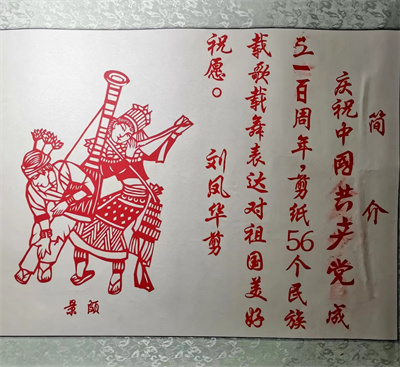 简介
庆祝中国共产党成
立一百周年,剪纸56个民族
载歌载舞表达对祖国美好
祝愿。 刘凤华剪
景颇